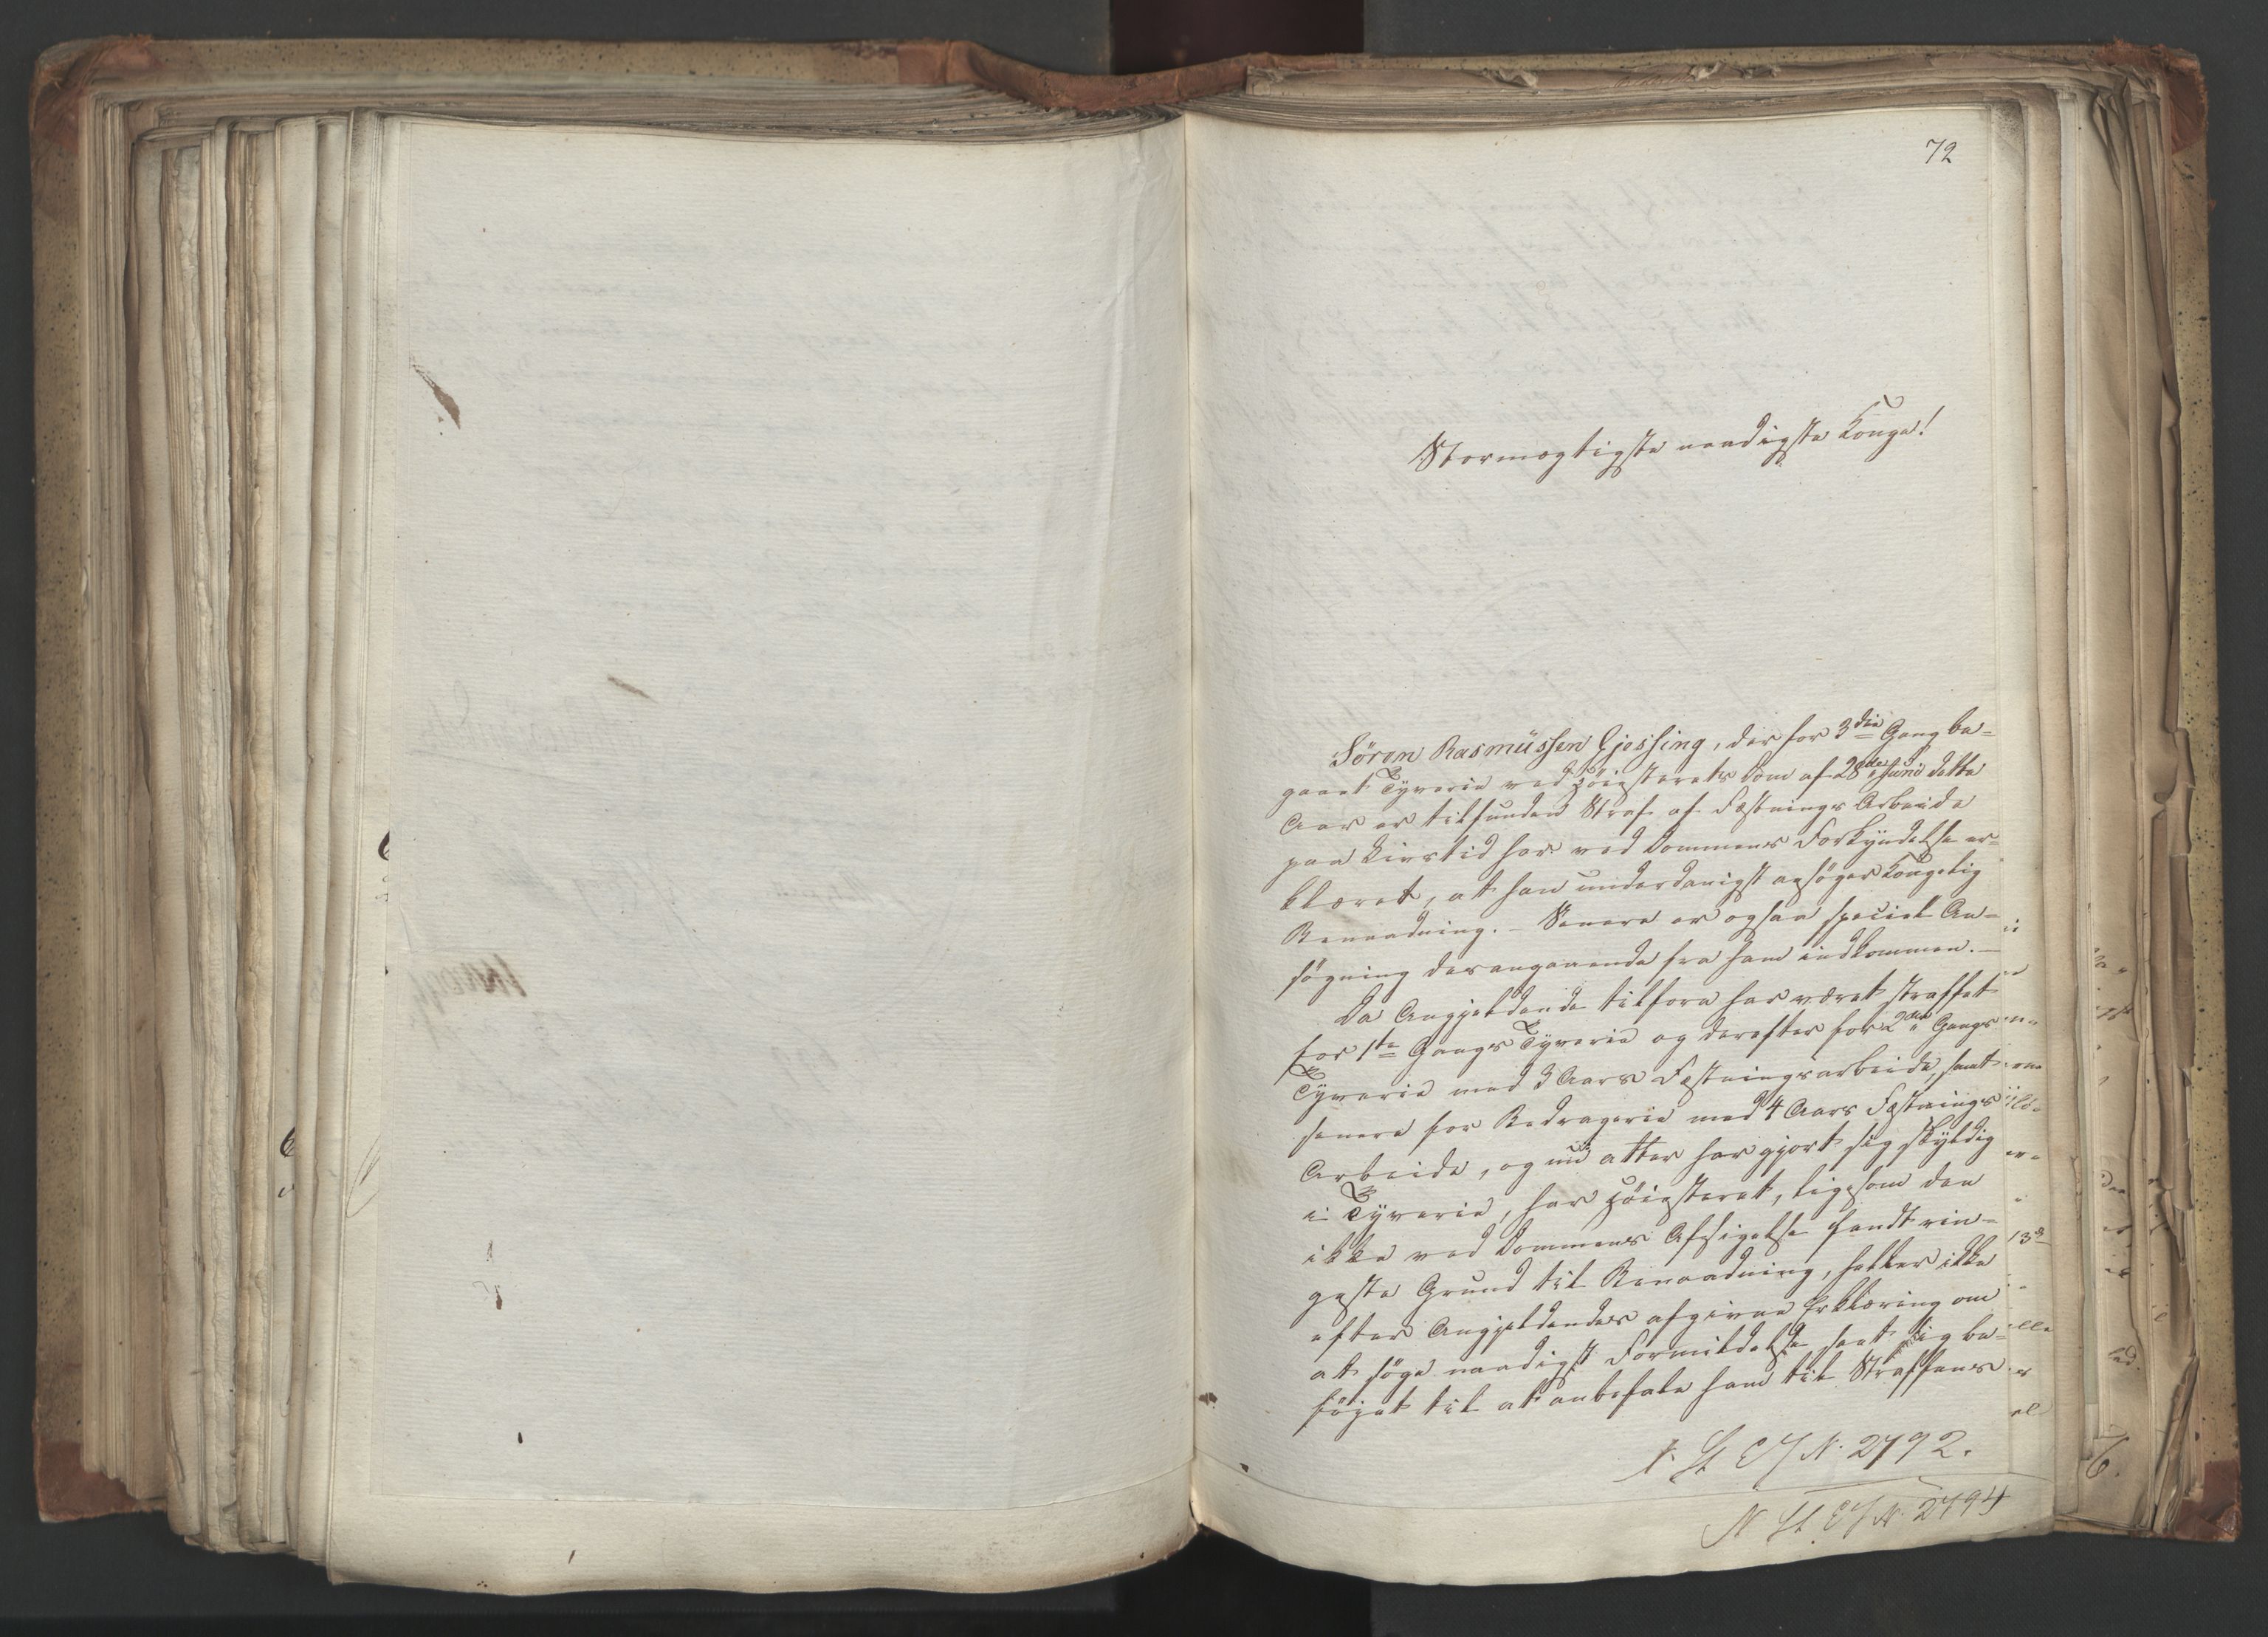 72
Stormægtigste naadigste Konge!
Sören Rasmüssen Gjessing, der for 3die Gang be-
gaaet Tyverie ved Höiesterets Dom af 28de Juni dette
Aar er tilfunden Straf af Fæstnings Arbeide
paa Livstid har ved Dommens Forkyndelse er-
klæret, at han underdanigst ansöger Kongelig
Benaadning. - Senere er ogsaa speciel An-
sögning derangaaende fra ham indkommen. -
Da Angjeldende tilforn har været straffet
for 1te Gangs Tyverie og derefter for 2den Gangs
Tyverie med 3 Aars Fæstningsarbeide, samt
senere for Bedragerie med 4 Aars Fæstnings
Arbeide, og nu atter har gjort sig skyldig
i Tyverie, har Höiesteret, ligesom den
ikke ved Dommens Afsigelse fandt rin-
geste Grund til Benaadning, heller ikke
efter Angjeldendes afgivne Erklæring om
at söge naadigst Formildelse seet sig be-
föiet til at anbefale ham til Straffens
N. St. E J N. 2792.
N St. E J N. 2794